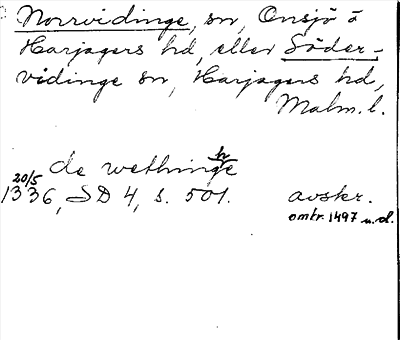 Norrvidinge, sn, Onsjö o
Harjagers hd, eller Söder-
vidinge sn, Harjagers hd,
Malm. l.
de wethninge
h
20/5
1336, SD 4, s. 501. avskr.
omkr. 1497 u.d.